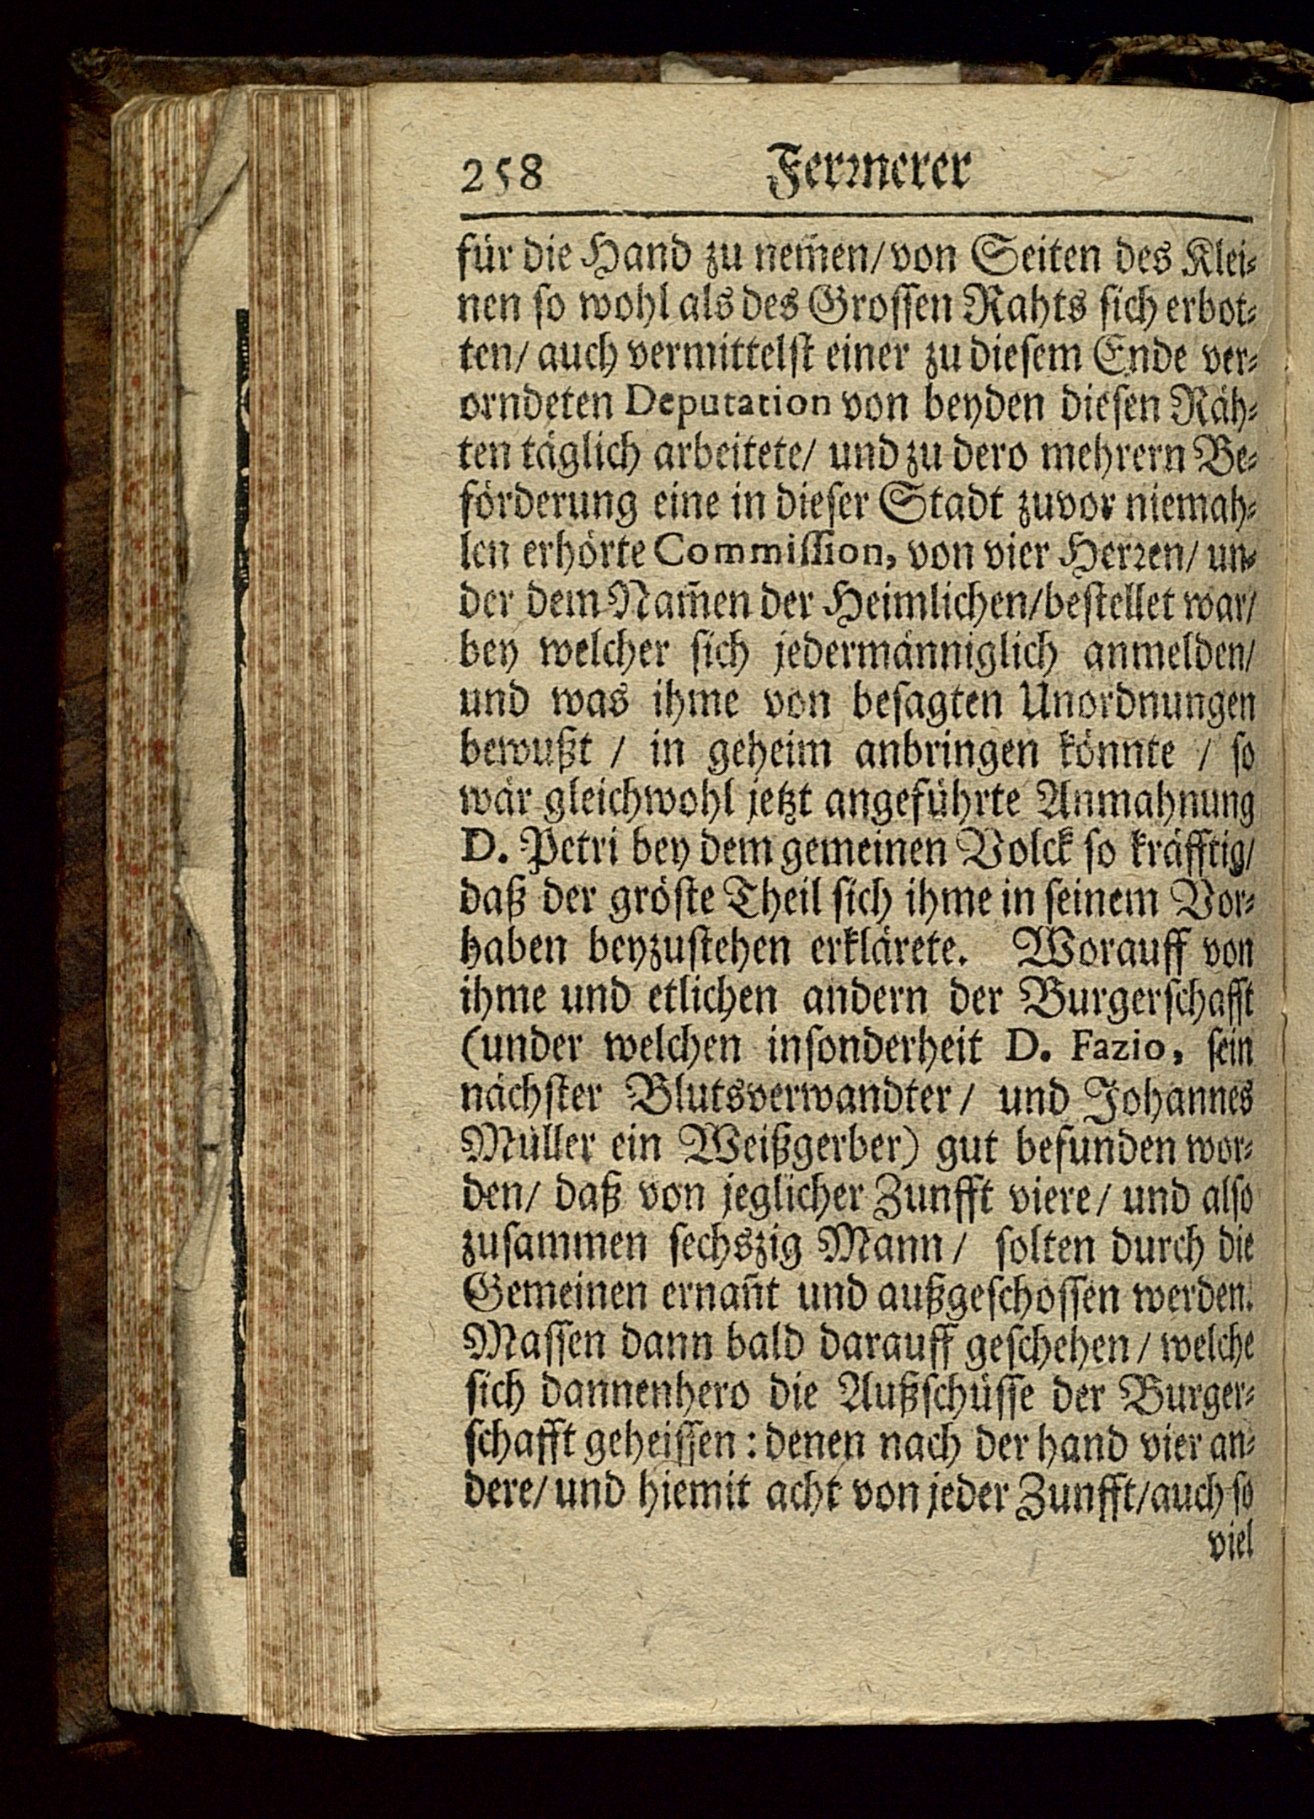 258 Fermerer
für die Hand zu nem̃en/von Seiten des Klei⸗
nen so wohl als des Grossen Rahts sich erbot⸗
ten/ auch vermittelst einer zu diesem Ende ver⸗
orndeten Deputation von beyden diesen Räh⸗
ten täglich arbeitete/ und zu dero mehrern Be⸗
förderung eine in dieser Stadt zuvor niemah⸗
len erhörte Commission, von vier Herren/ un⸗
der dem Nam̃en der Heimlichen/bestellet war/
bey welcher sich jedermänniglich anmelden/
und was ihme von besagten Unordnungen
bewußt / in geheim anbringen könnte / so
wär gleichwohl jetzt angeführte Anmahnung
D. Petri bey dem gemeinen Volck so kräfftig/
daß der gröste Theil sich ihme in seinem Vor⸗
haben beyzustehen erklärete. Worauff von
ihme und etlichen andern der Burgerschafft
(under welchen insonderheit D. Fazio, sein
nächster Blutsverwandter/ und Johannes
Müller ein Weißgerber) gut befunden wor⸗
den/ daß von jeglicher Zunfft viere/ und also
zusammen sechszig Mann/ solten durch die
Gemeinen ernañt und außgeschossen werden.
Massen dann bald darauff geschehen/ welche
sich dannenhero die Außschüsse der Burger⸗
schafft geheissen: denen nach der hand vier an⸗
dere/ und hiemit acht von jeder Zunfft/auch so
viel